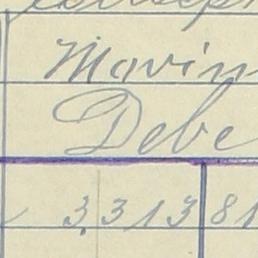 Marin
Debe
3,313 81